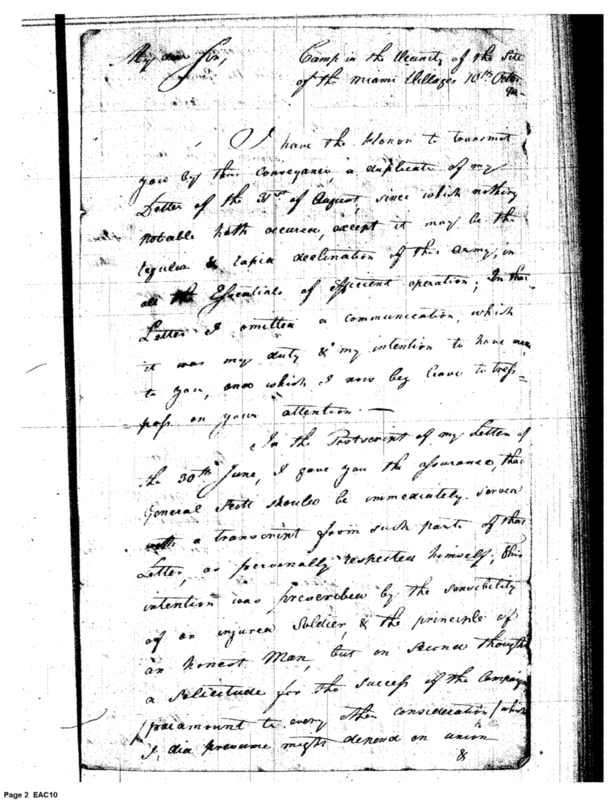 My dear Sir,
Camp in the Vicinity of the Site
of the Miami Villages 10th Octor
94—
I have the Honor to transmit
you by this conveyance, a duplicate of my
Letter of the 31st of August, since which nothing
Notable hath occured, except it may be the
regular & rapid declination of this Army, in
all the Essentials of efficient operation; In that
Letter I omitted a communication, which
it was my duty & my intention to have made
to you, and which I now beg leave to tress=
pass on your attention.—
In the Postscript of my Letter of
the 30th June, I gave you the assurance, that
General Scott should be immediately served
with a transcript from such parts of that
Letter, as personally respected himself; this
intention was prescribed by the sensibility
of an injured Soldier, & the principle of
an honest Man, but on second thought
a solicitude for the success of the Campaign
/paramount to every other consideration/ which
I did presume might depend on union
&
Page 2 EAC10